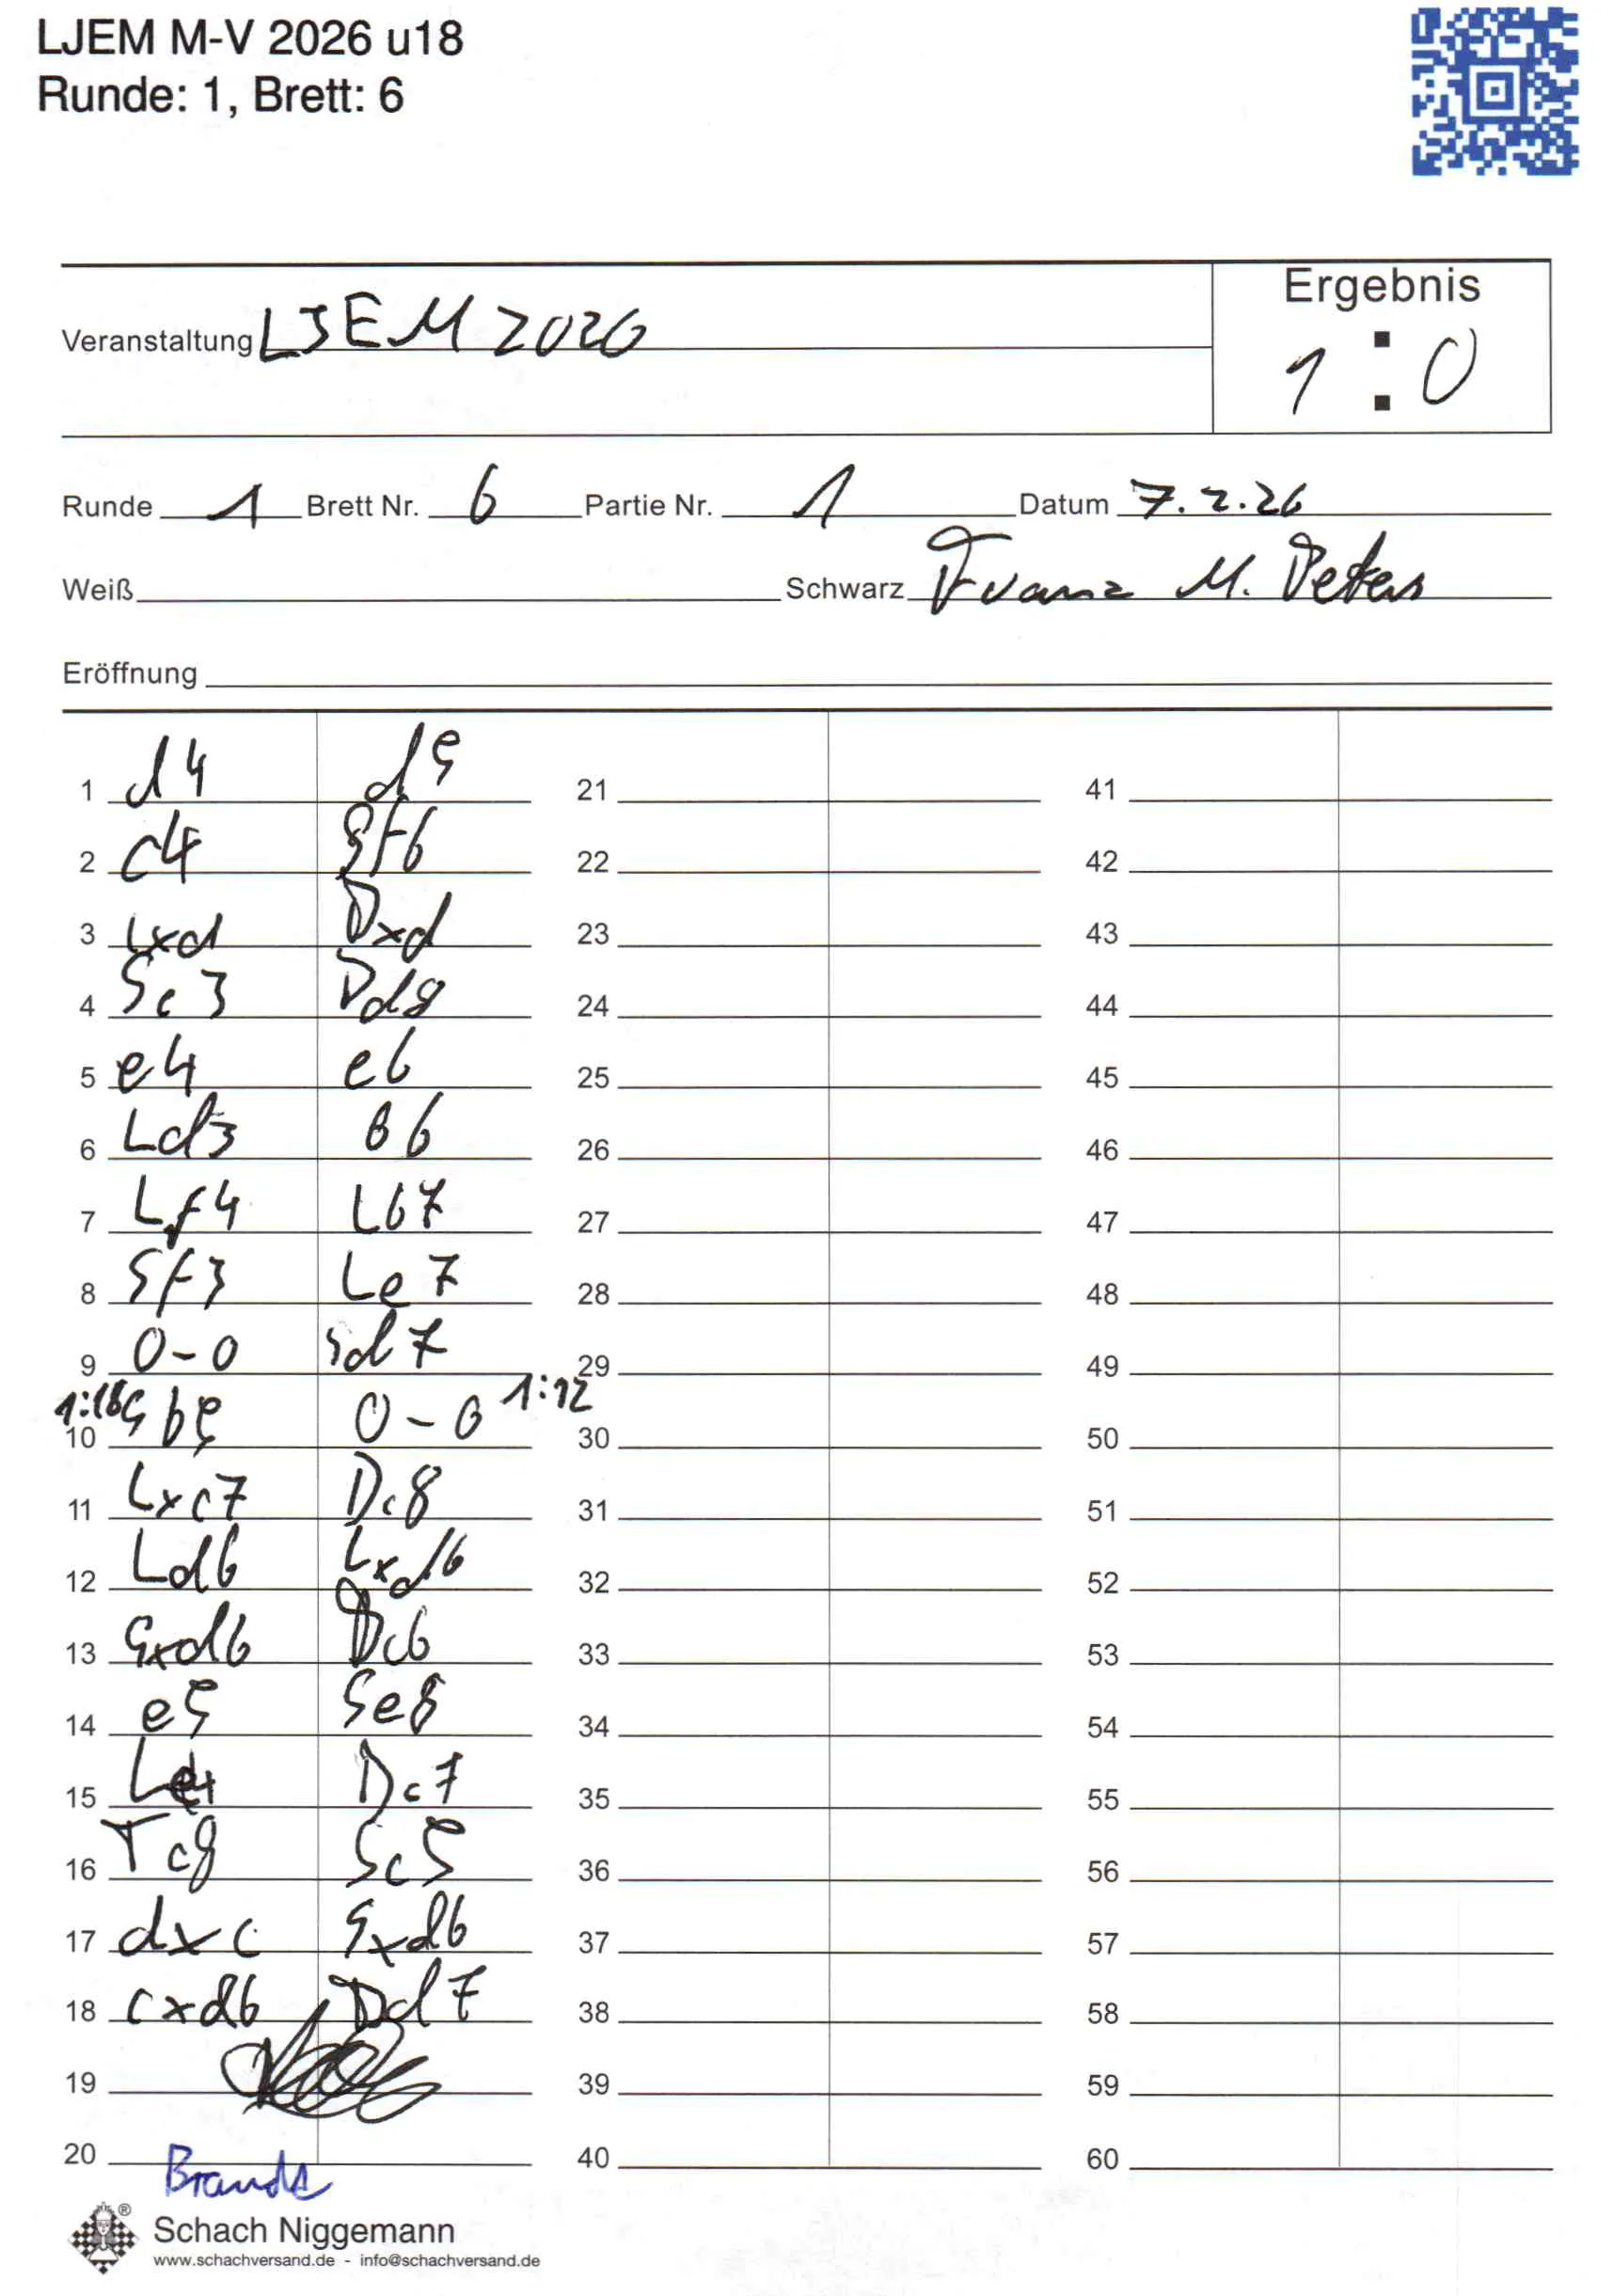 LJEM M-V 2026 u18
Runde: 1, Brett: 6
Ergebnis
Veranstaltung LJEM 2026
1 : 0
Runde 1 Brett Nr. 6 Partie Nr. 1 Datum 7.2.26
Weiß Schwarz Franz M. Peters
Eröffnung
1 d4 d5 21 41
2 c4 Sf6 22 42
3 cxd Dxd 23 43
4 Sc3 Dd8 24 44
5 e4 e6 25 45
6 Ld3 b6 26 46
7 Lf4 Lb7 27 47
8 Sf3 Le7 28 48
9 0-0 Sd7 29 49
1:18 1:12
10 Sb5 0-0 30 50
11 Lxc7 Dc8 31 51
12 Ld6 Lxd6 32 52
13 Sxd6 Dc6 33 53
14 e5 Se8 34 54
15 Le4 Dc7 35 55
16 Tc8 Sc5 36 56
17 dxc Sxd6 37 57
18 cxd6 Dd7 38 58
19 39 59
20 40 60
Brandt
®
Schach Niggemann
www.schachversand.de - info@schachversand.de